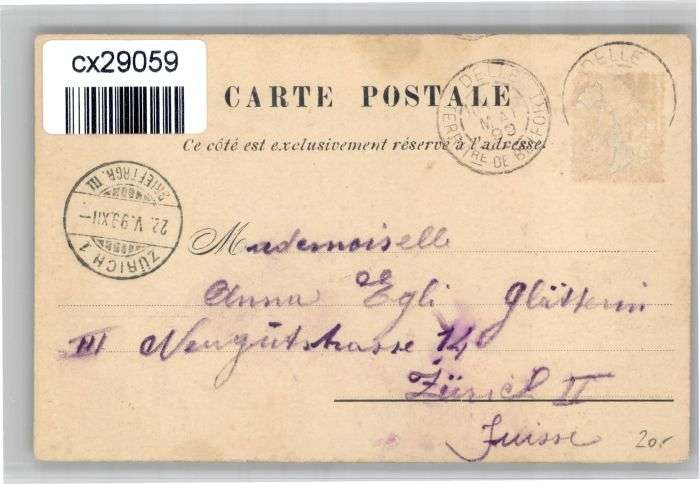 cx29059
CARTE POSTALE
Ce côté est exclusivement réservé à l'adresse.
DELLE
MAI
99
TERRITRE DE BELFORT
DELLE
BRIEFTRGR. III
22. V. 99. XII—
ZÜRICH 1
Mademoiselle
Anna Egli Glätterin
III Neugutstrasse 14
Zürich II
Suisse
20.-